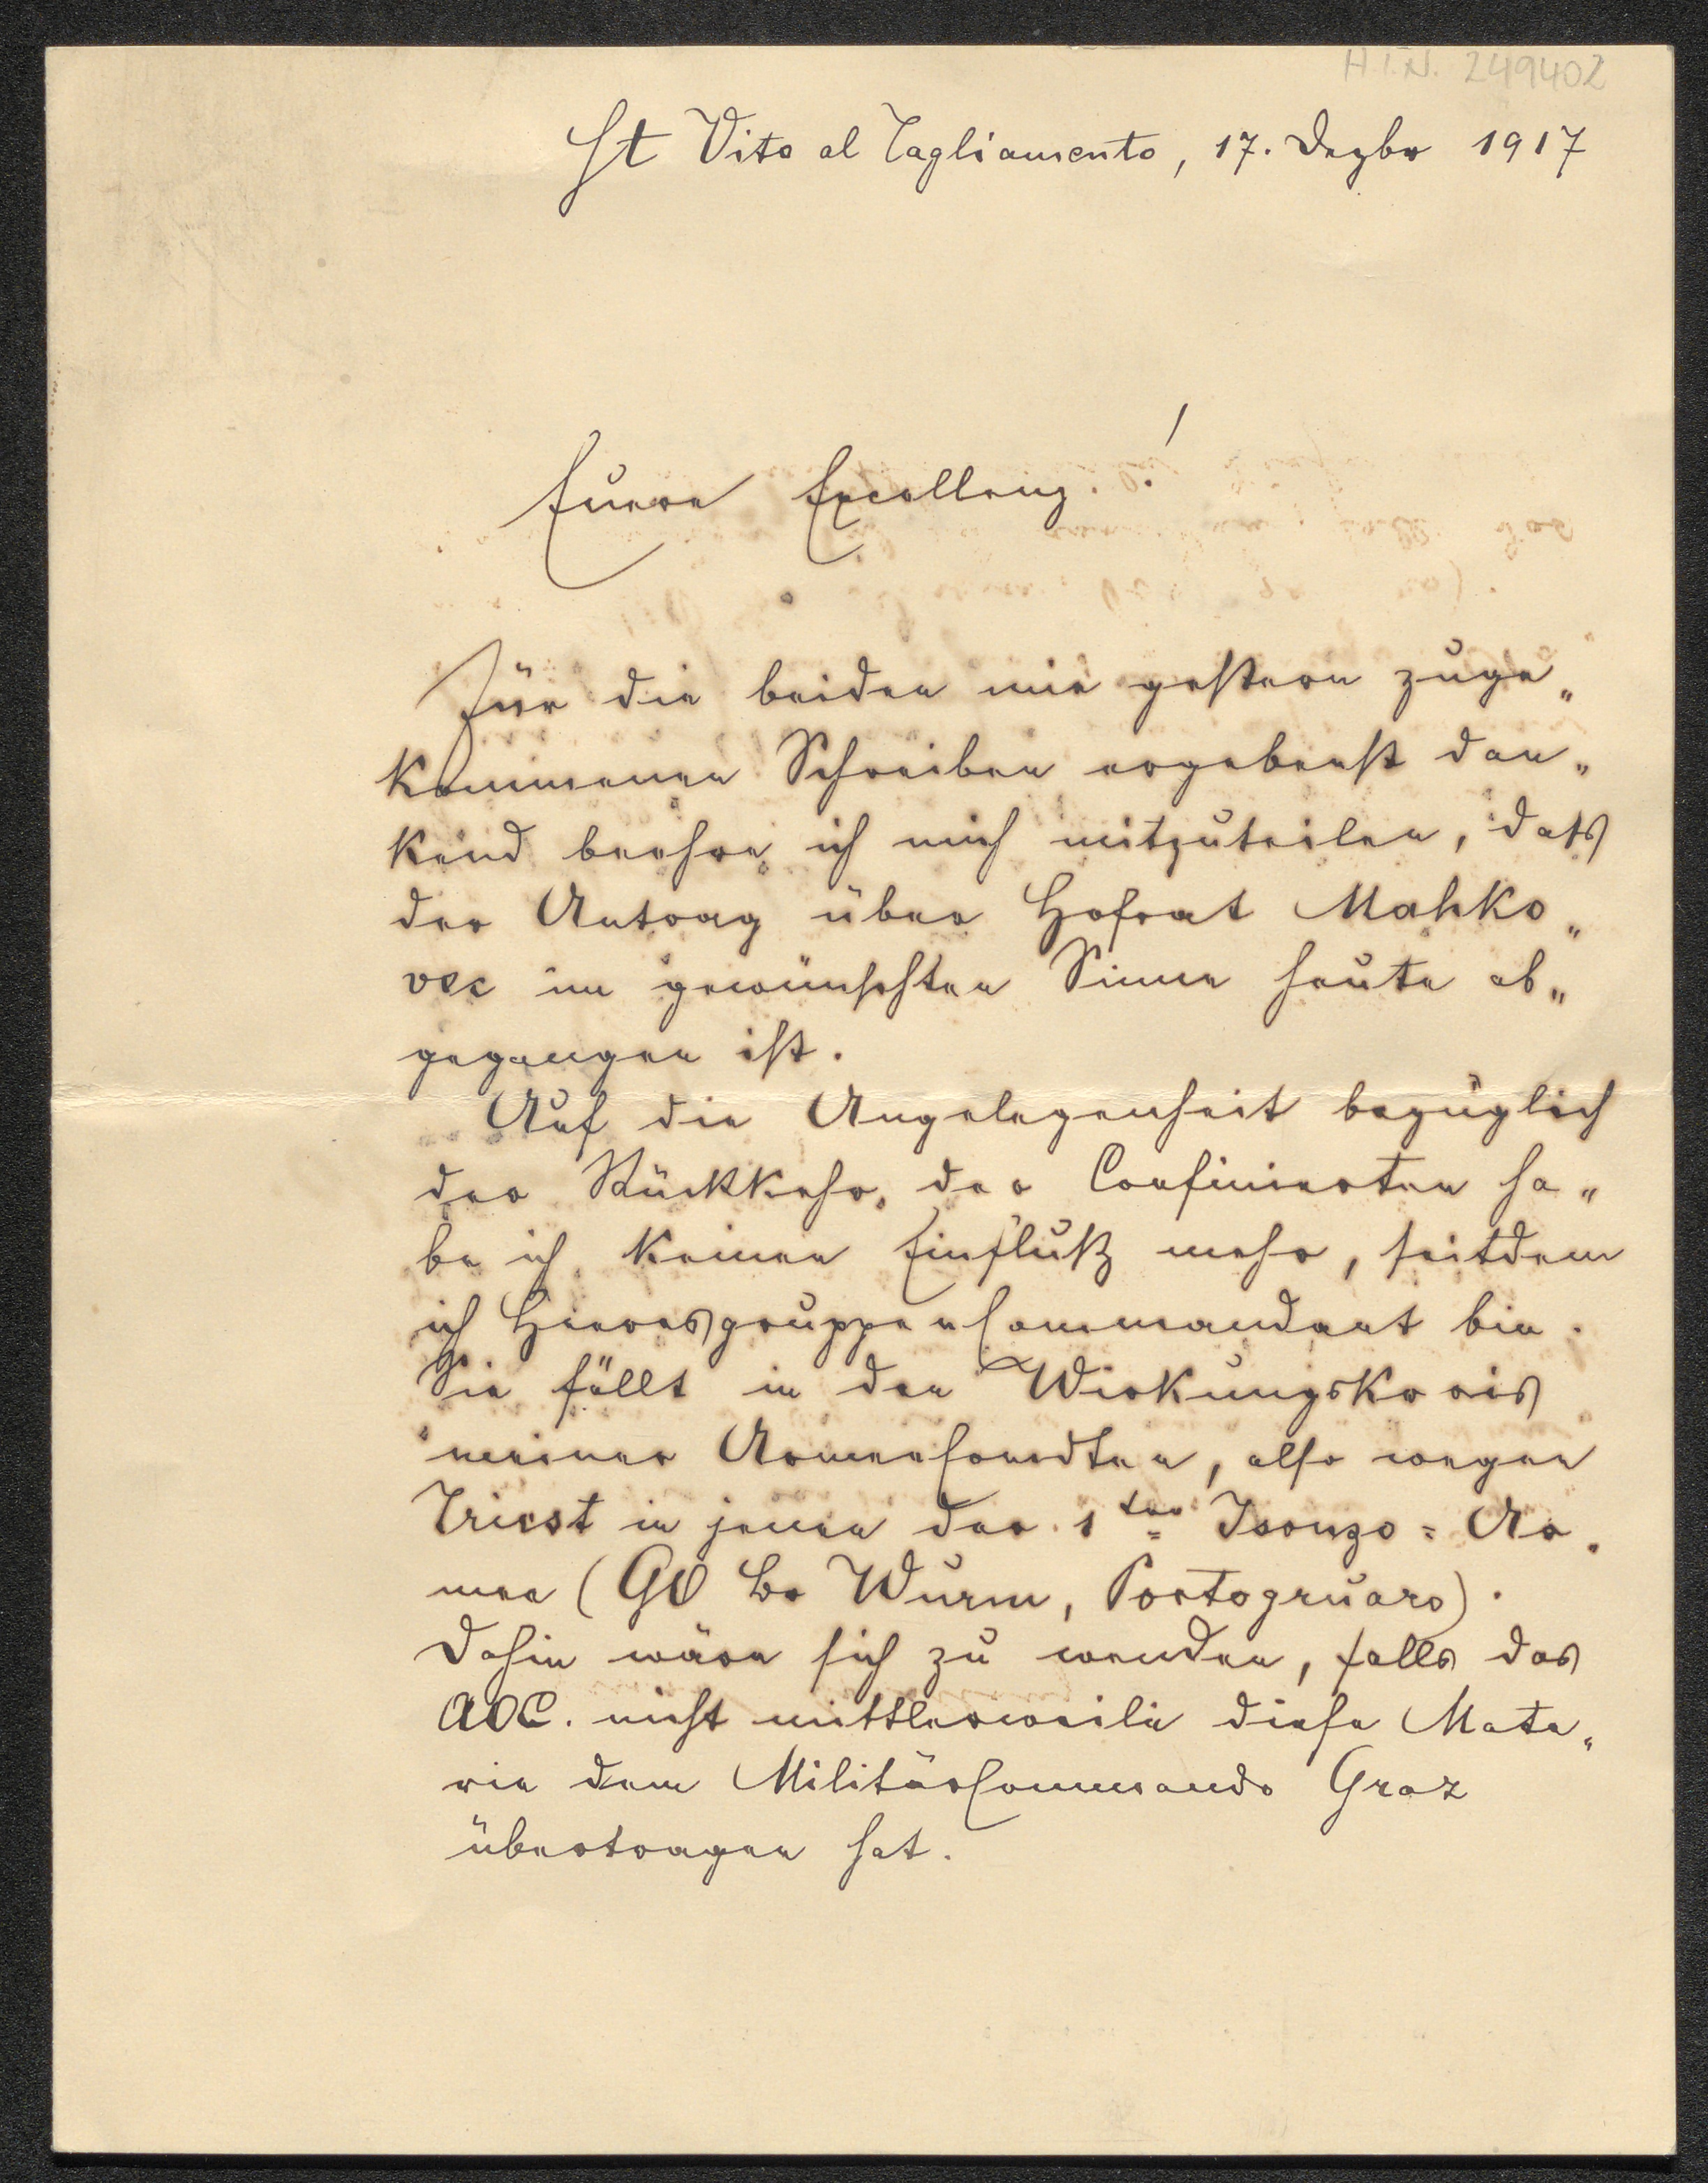 H.I.N. 249402
St Vito al Tagliamento, 17. Dezbr 1917
Euere Excellenz!
Für die beiden mir gestern zuge„
kommenen Schreiben ergebenst dan„
kend beehre ich mich mitzuteilen, dass
der Antrag über Hofrat Mahko„
vec im gewünschten Sinne heute ab„
gegangen ist.
Auf die Angelegenheit bezüglich
der Rückkehr der Confinierten ha„
be ich keinen Einfluß mehr, seitdem
ich Heeresgruppencommandant bin.
Sie fällt in den Wirkungskreis
meiner Armeecomdten, also wegen
Triest in jenen der 1ten Isonzo=Ar„
mee (GO br Wurm, Portogruaro).
Dahin wäre sich zu wenden, falls das
AOC. nicht mittlerweile diese Mate„
rie dem Militärcommando Graz
übertragen hat.